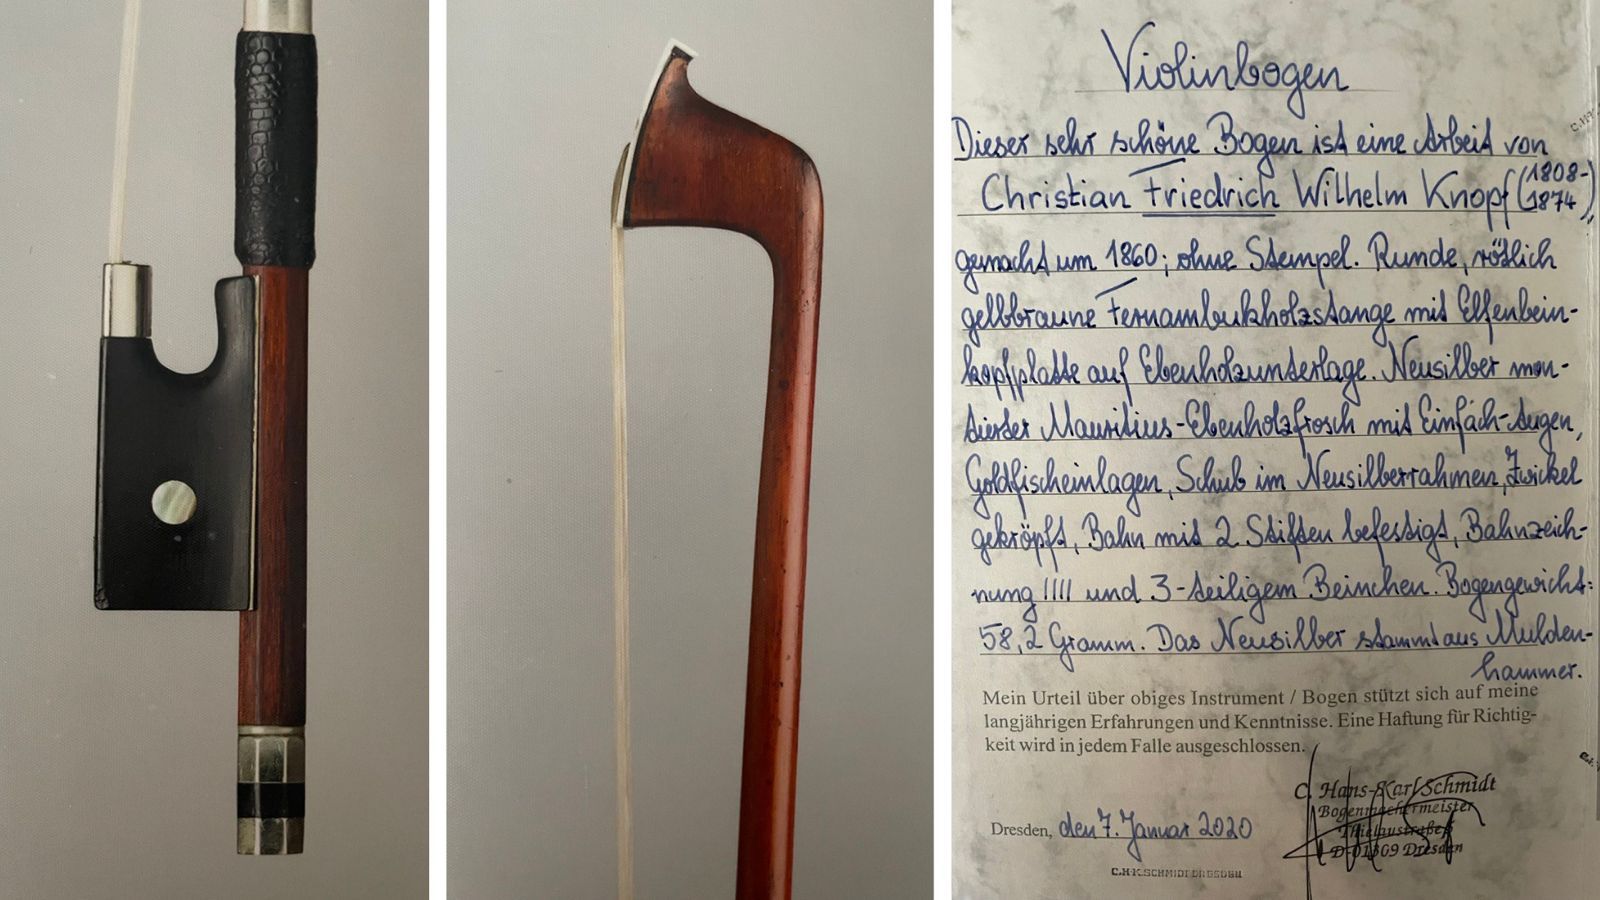 Violinbogen
Dieser sehr schöne Bogen ist eine Arbeit von
Christian Friedrich Wilhelm Knopf (1808-1874),
gemacht um 1860; ohne Stempel. Runde, rötlich
gelbbraune Fernambukholzstange mit Elfenbein-
kopfplatte auf Ebenholzunterlage. Neusilber mon-
tierter Mauritius-Ebenholzfrosch mit Einfach-Augen,
Goldfischeinlagen, Schub im Neusilberrahmen, Zwickel
gekröpft, Bahn mit 2 Stiften befestigt, Bahnzeich-
nung IIII und 3-teiligem Beinchen. Bogengewicht:
58,2 Gramm. Das Neusilber stammt aus Mulden-
hammer.
Mein Urteil über obiges Instrument / Bogen stützt sich auf meine
langjährigen Erfahrungen und Kenntnisse. Eine Haftung für Richtig-
keit wird in jedem Falle ausgeschlossen.
C. Hans-Karl Schmidt
Bogenmachermeister
Thielaustraße
D-01309 Dresden
Dresden, den 7. Januar 2020
C.H-K.SCHMIDT DRESDEN